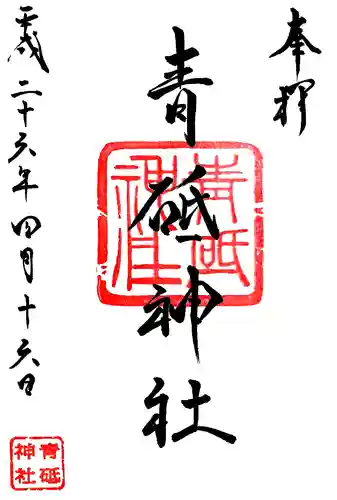 奉拝
青砥神社
青砥神社
平成二十六年四月十六日
青砥神社